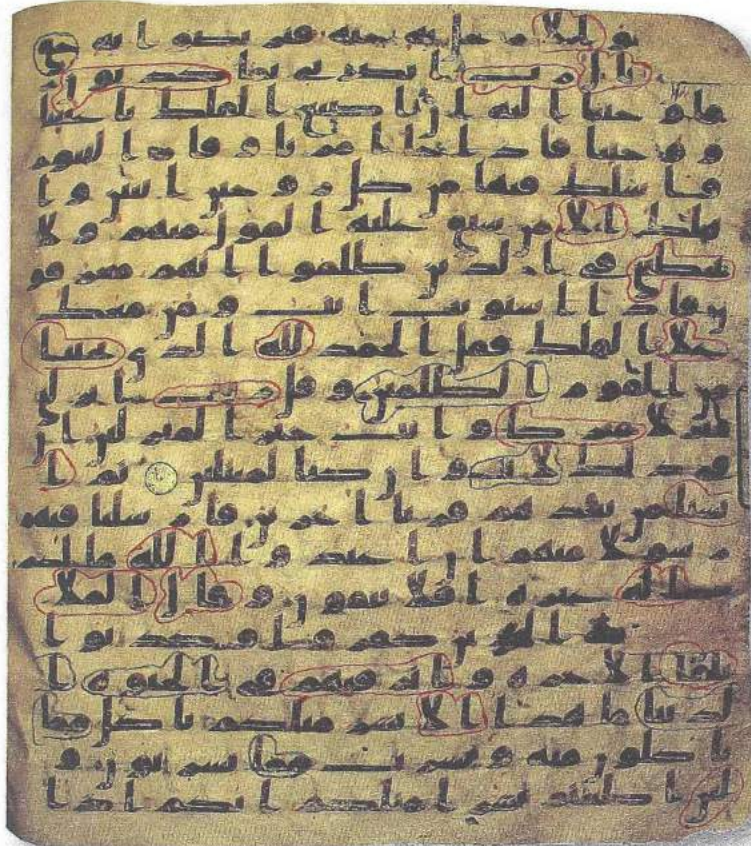 ن هو الا رجل به جنة فتربصوا به حتى
قال رب انصرني بما كذبون
فاوحينا اليه ان اصنع الفلك باعيننا
ووحينا فاذا جا امرنا وفار التنور
فاسلك فيها من كل زوجين اثنين وا
هلك الا من سبق عليه القول منهم ولا
تخطبني في الذين ظلموا انهم مغرقو
ن فاذا استويت انت ومن معك
على الفلك فقل الحمد لله الذي نجينا
من القوم الظلمين وقل رب انزلني
منزلا مبركا وانت خير المنزلين ان
في ذلك لايت وان كنا لمبتلين ثم ا
نشانا من بعدهم قرنا اخرين فارسلنا فيهم
رسولا منهم ان اعبدوا الله ما لكم
من اله غيره افلا تتقون وقال الملا
الذين كفروا وكذبوا
بلقا الاخرة واترفنهم في الحيوة ا
لدنيا ما هذا الا بشر مثلكم ياكل مما
تاكلون منه ويشرب مما تشربون و
لئن اطعتم بشرا مثلكم انكم اذا